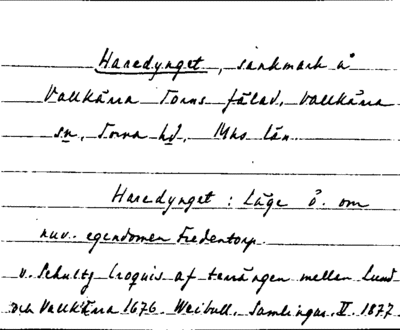 Haredynget, sankmark å
Vallkärra Torns fälad, Vallkärra
sn, Torna hd, Mhs län
Haredynget : Läge ö. om
nuv. egendomen Fredentorp.
v. Schultz Croquis af terrängen mellan Lund
och Vallkärra 1676. Weibull, Samlingar. II. 1877